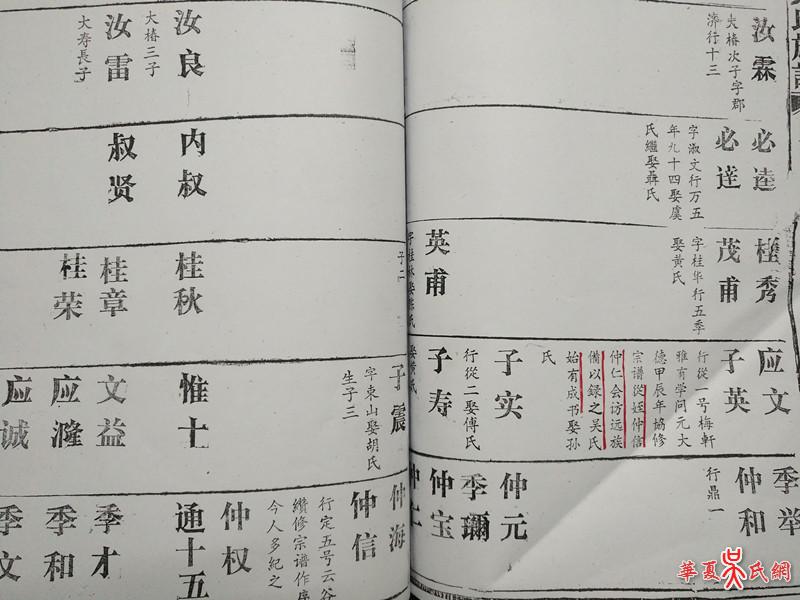 汝霖
夫椿次子字郡
濟行十三
必逵
必達
字淑文行万五
年九十四娶虞
氏繼娶聶氏
桂秀
茂甫
字桂华行五季
娶黄氏
英甫
应文
子英
行從一号梅軒
雅有学問元大
德甲辰年協修
宗谱從姪仲信
仲仁会访远族
備以録之吴氏
始有成书娶孙
氏
子实
行從二娶傅氏
子寿
娶黄氏
季举
仲和
行鼎一
仲元
季璽
仲宝
仲仁
汝良
大椿三子
汝雷
大寿長子
内叔
叔贤
子二
桂秋
桂章
桂荣
子震
字東山娶胡氏
生子三
惟士
文益
应隆
应诚
仲海
仲信
行定五号云谷
纘修宗谱作序
今人多纪之
仲权
通十五
季才
季和
季文
華夏吴氏網